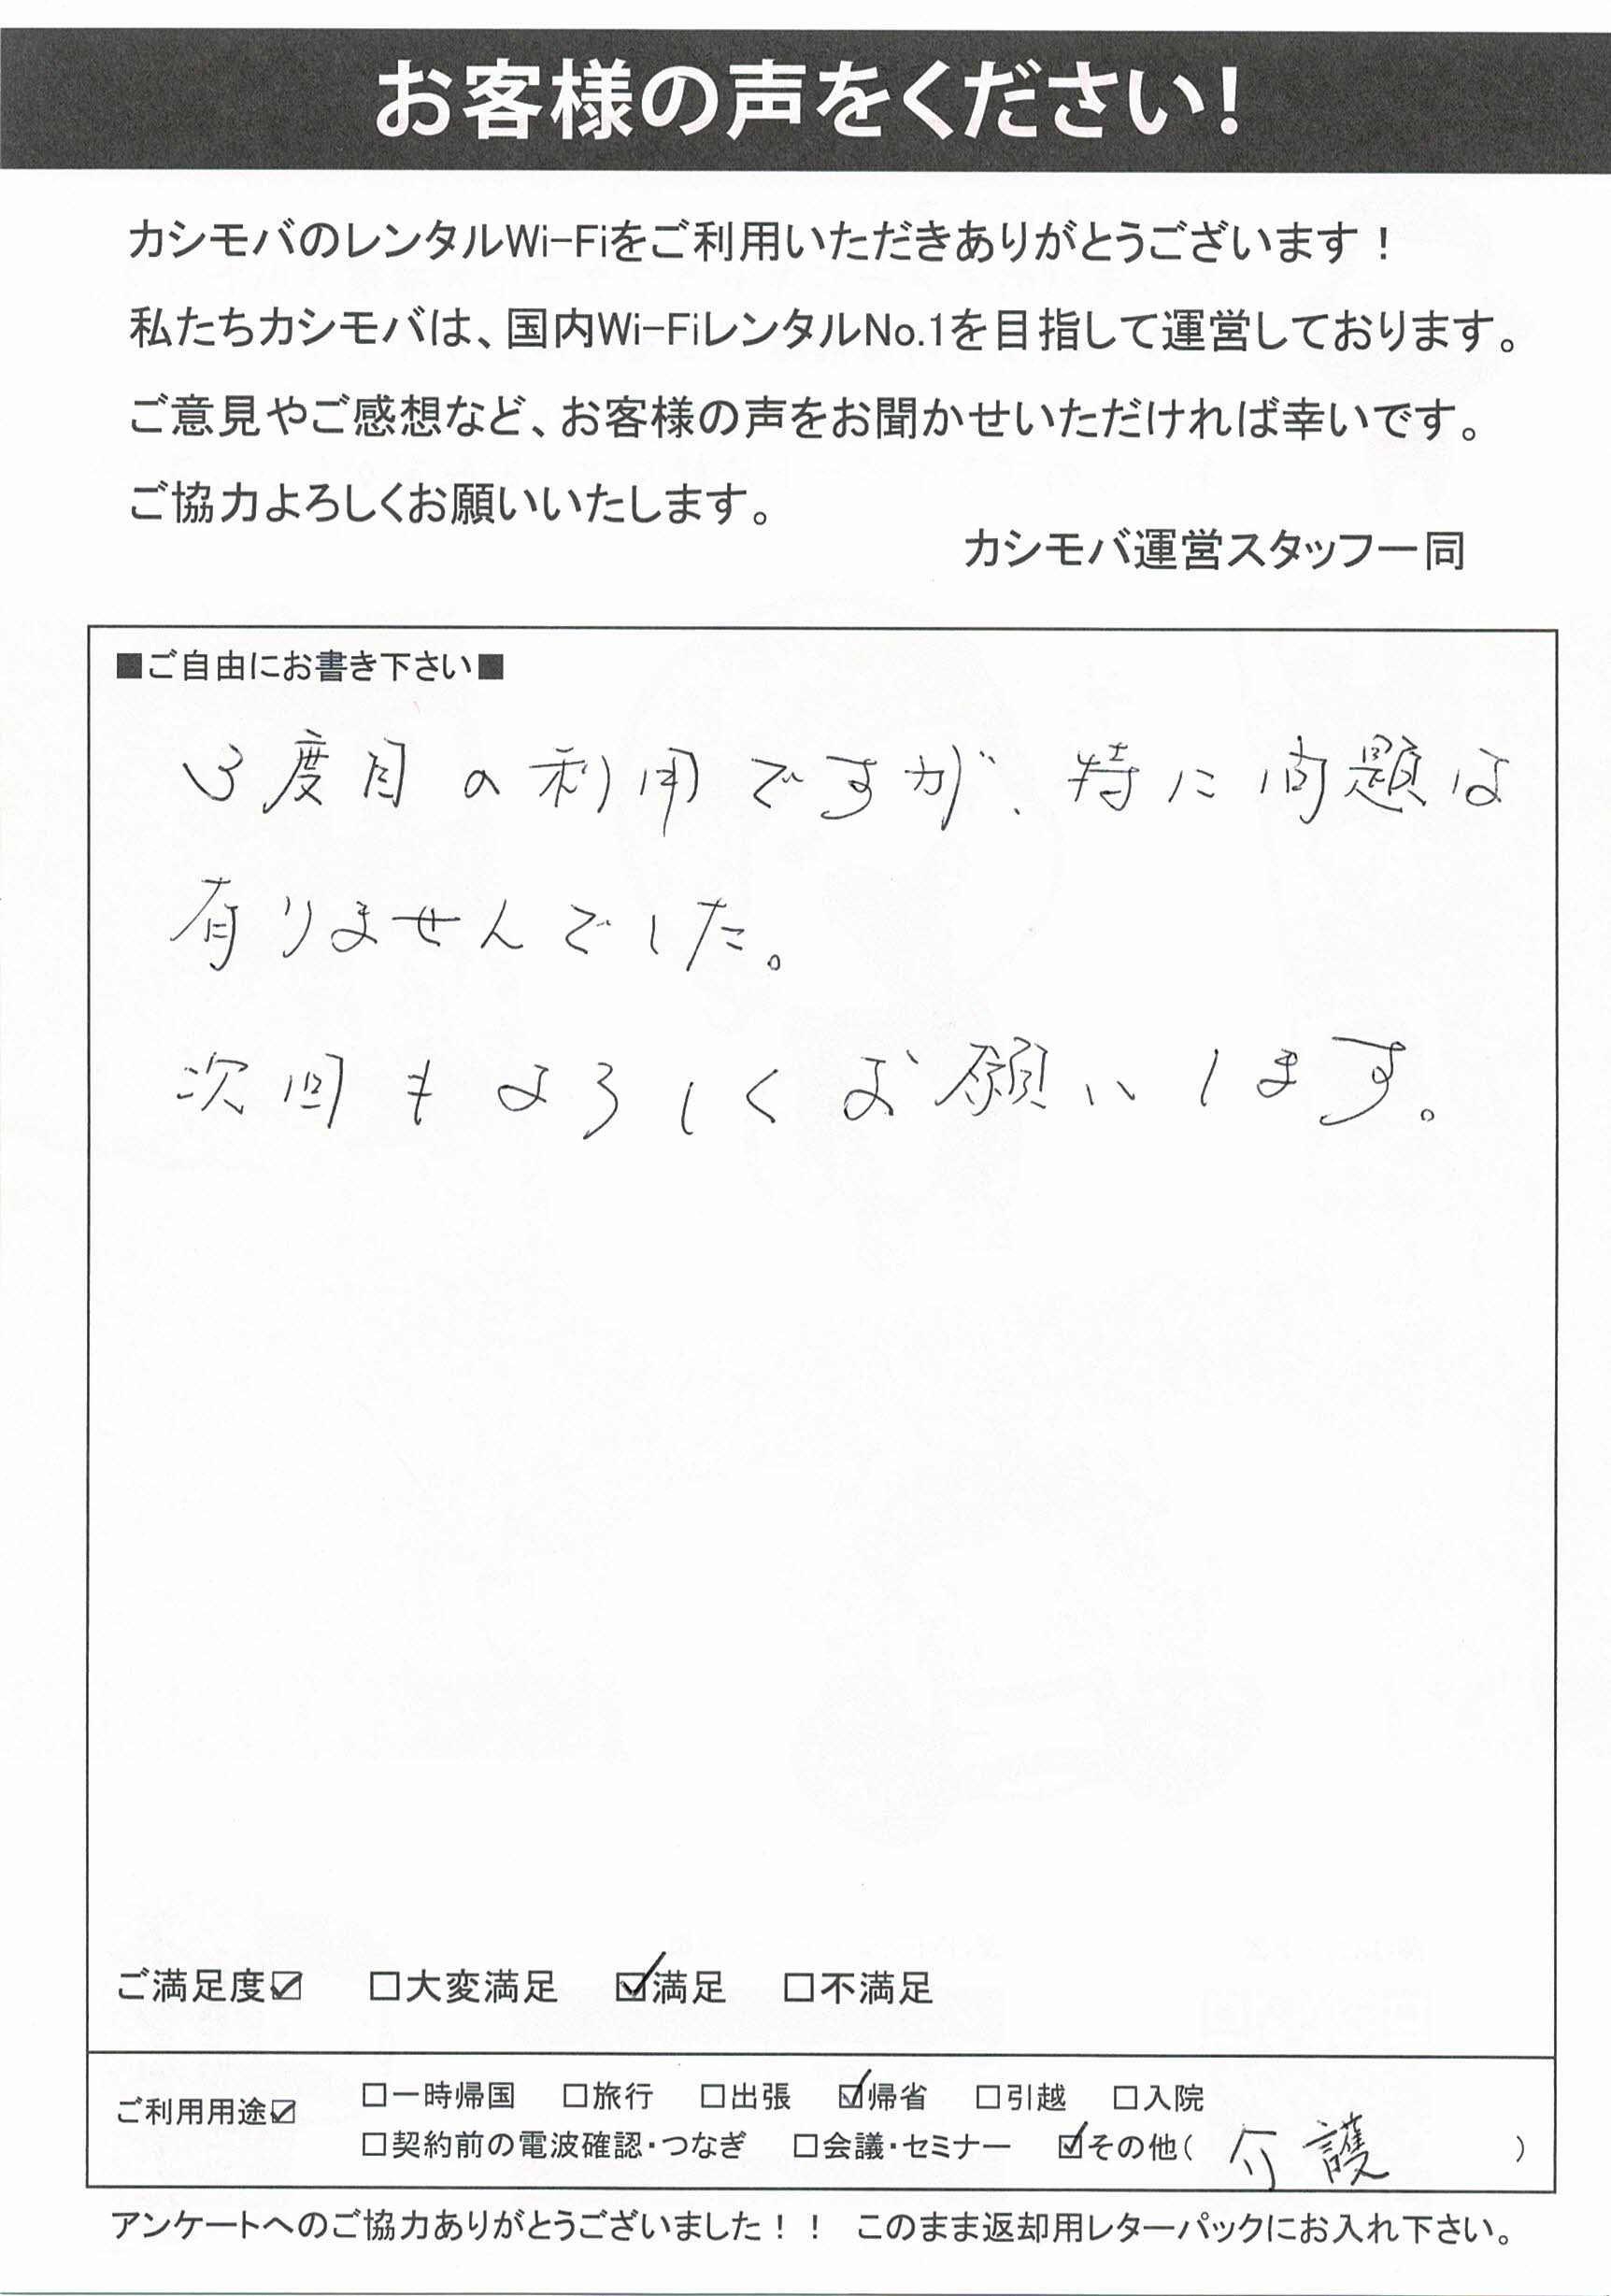 お客様の声をください!
カシモバのレンタルWi-Fiをご利用いただきありがとうございます!
私たちカシモバは、国内Wi-FiレンタルNo.1を目指して運営しております。
ご意見やご感想など、お客様の声をお聞かせいただければ幸いです。
ご協力よろしくお願いいたします。
カシモバ運営スタッフ一同
■ご自由にお書き下さい■
3度目の利用ですが、特に問題は
有りませんでした。
次回もよろしくお願いします。
ご満足度☑ □大変満足 ☑満足 □不満足
ご利用用途☑ □一時帰国 □旅行 □出張 ☑帰省 □引越 □入院
□契約前の電波確認・つなぎ □会議・セミナー ☑その他( 介護 )
アンケートへのご協力ありがとうございました!! このまま返却用レターパックにお入れ下さい。